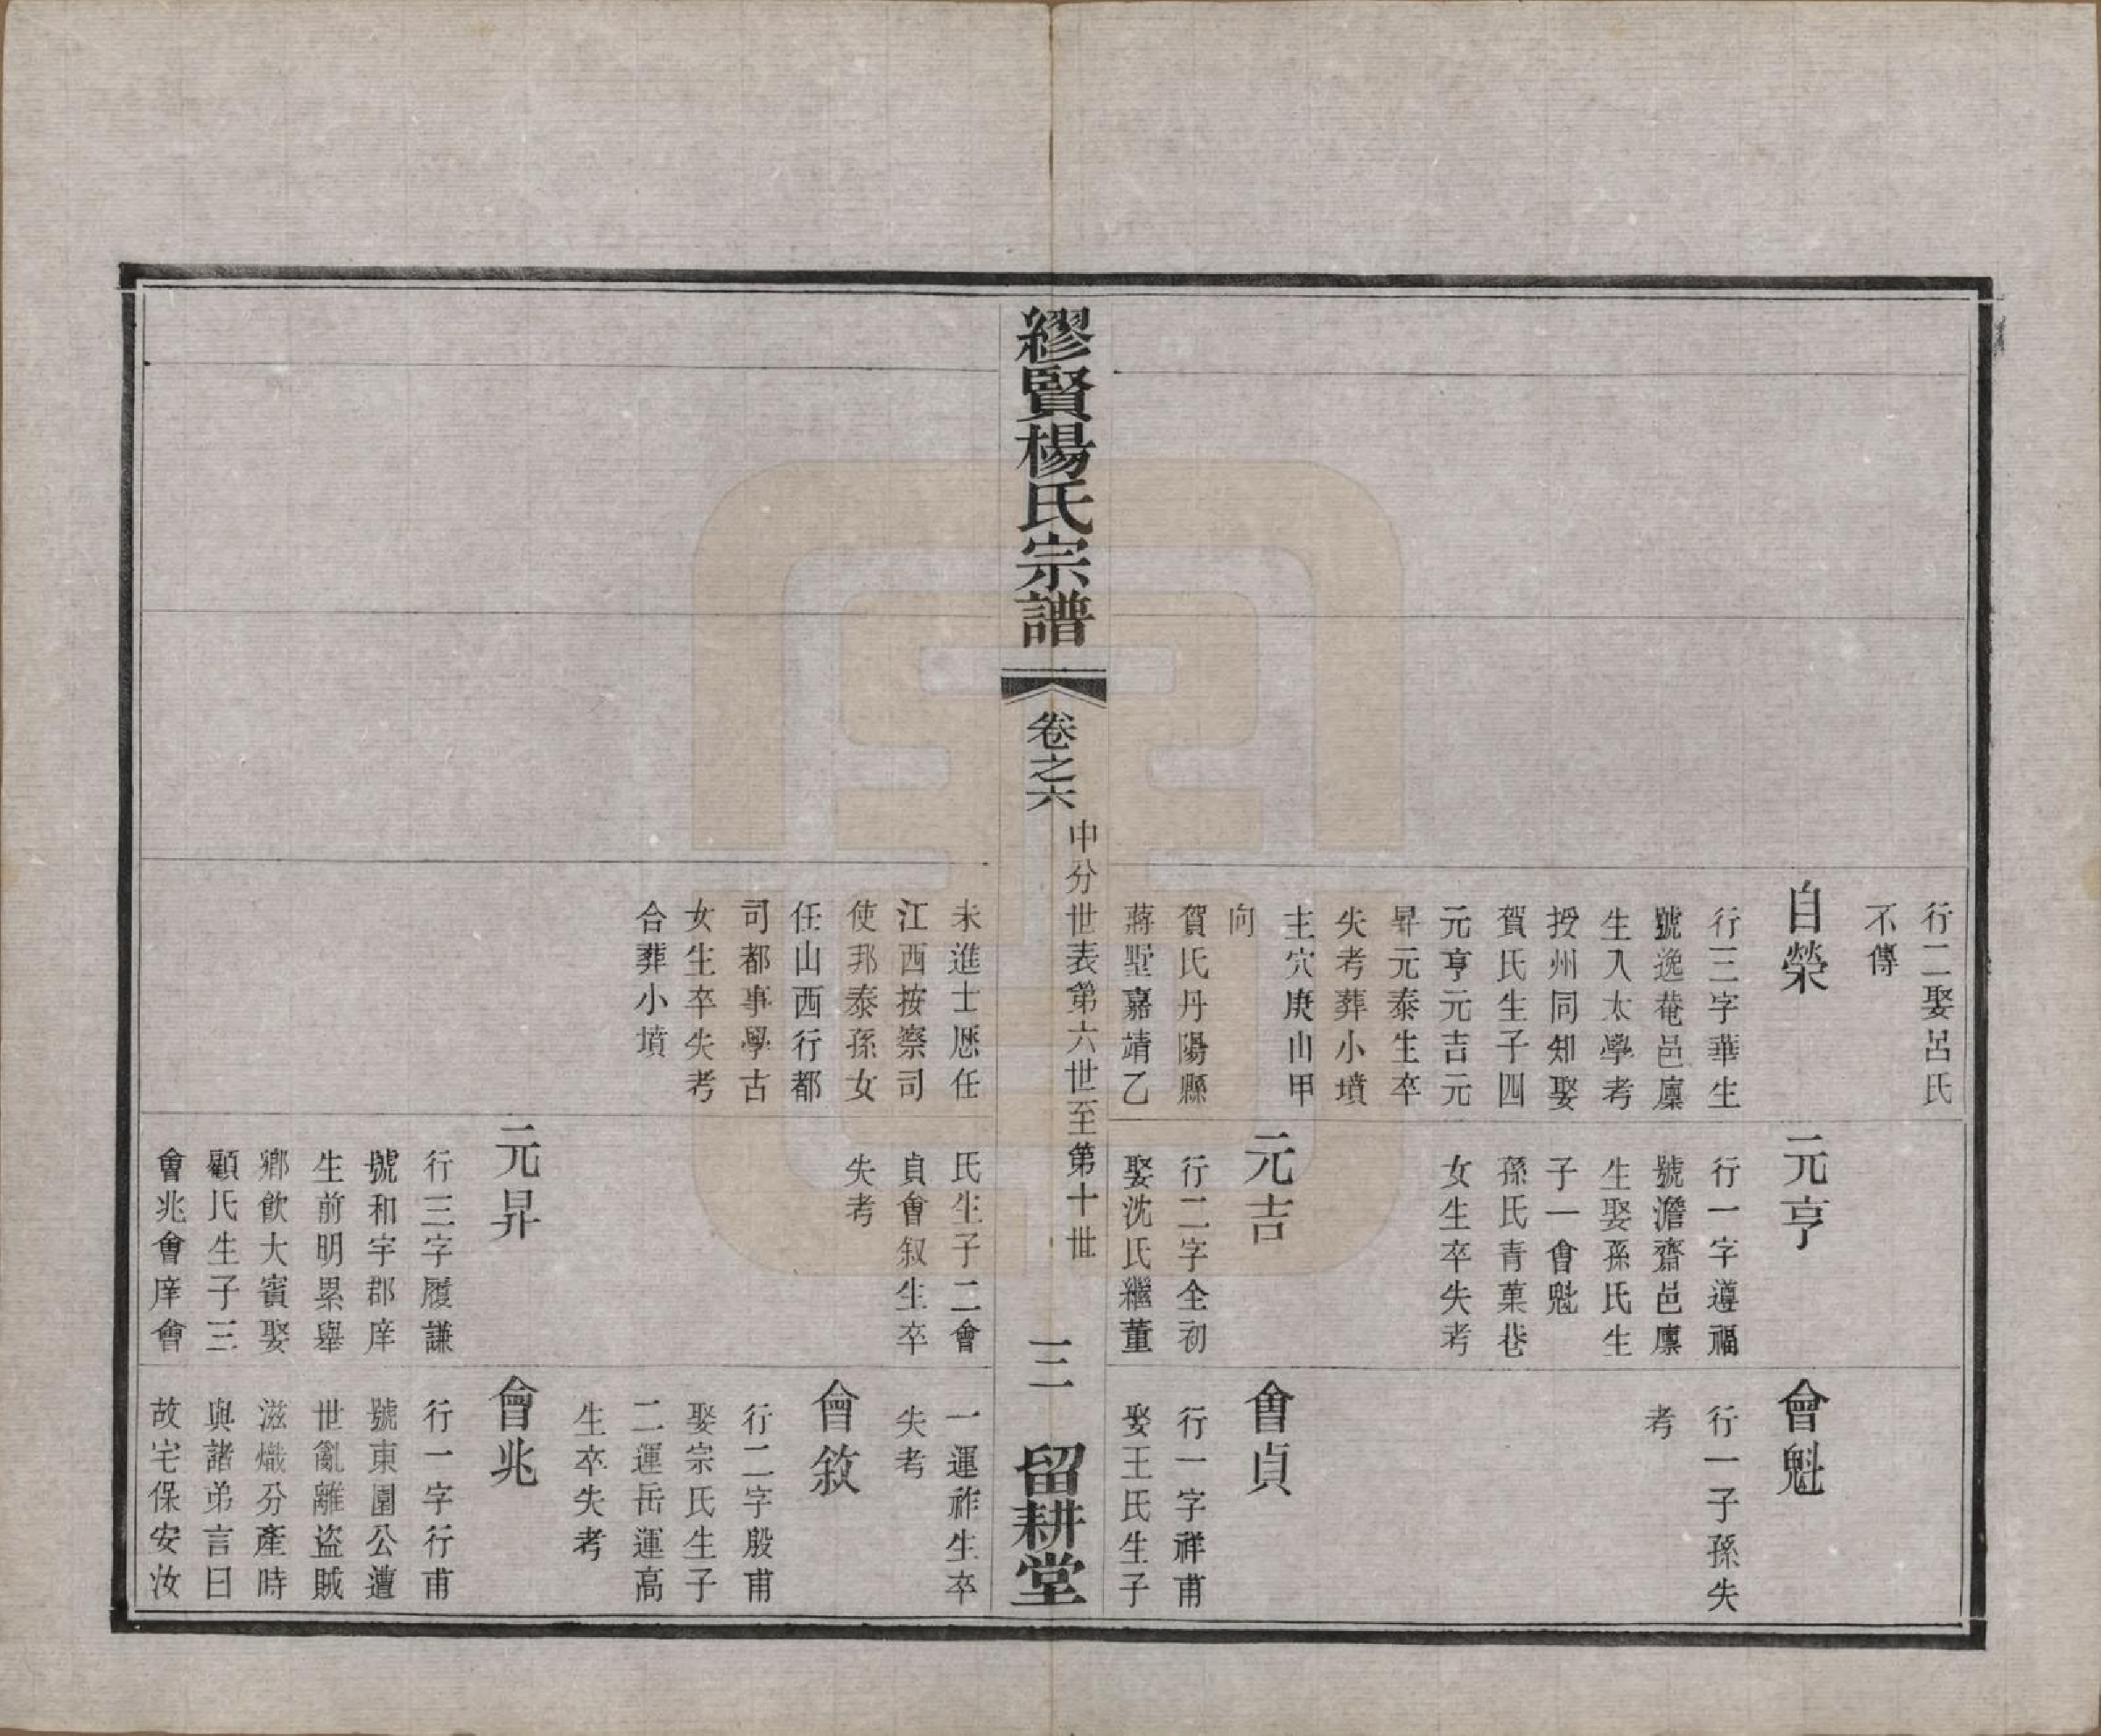 行二娶呂氏
不傳
自榮
行三字華生
號逸菴邑廩
生入太學考
授州同知娶
賀氏生子四
元亨元吉元
昇元泰生卒
失考葬小墳
主穴庚山甲
向
賀氏丹陽縣
蔣墅嘉靖乙
元亨
行一字遵福
號澹齋邑廩
生娶孫氏生
子一會魁
孫氏青菓巷
女生卒失考
元吉
行二字全初
娶沈氏繼董
會魁
行一子孫失
考
會貞
行一字祥甫
娶王氏生子
繆賢楊氏宗譜
卷之六
中分世表第六世至第十世
三
留耕堂
未進士歷任
江西按察司
使邦泰孫女
任山西行都
司都事學古
女生卒失考
合葬小墳
氏生子二會
貞會叙生卒
失考
元昇
行三字履謙
號和宇郡庠
生前明累舉
鄉飲大賓娶
顧氏生子三
會兆會庠會
一運祚生卒
失考
會敘
行二字殷甫
娶宗氏生子
二運岳運高
生卒失考
會兆
行一字行甫
號東園公遭
世亂離盜賊
滋熾分產時
與諸弟言曰
故宅保安汝